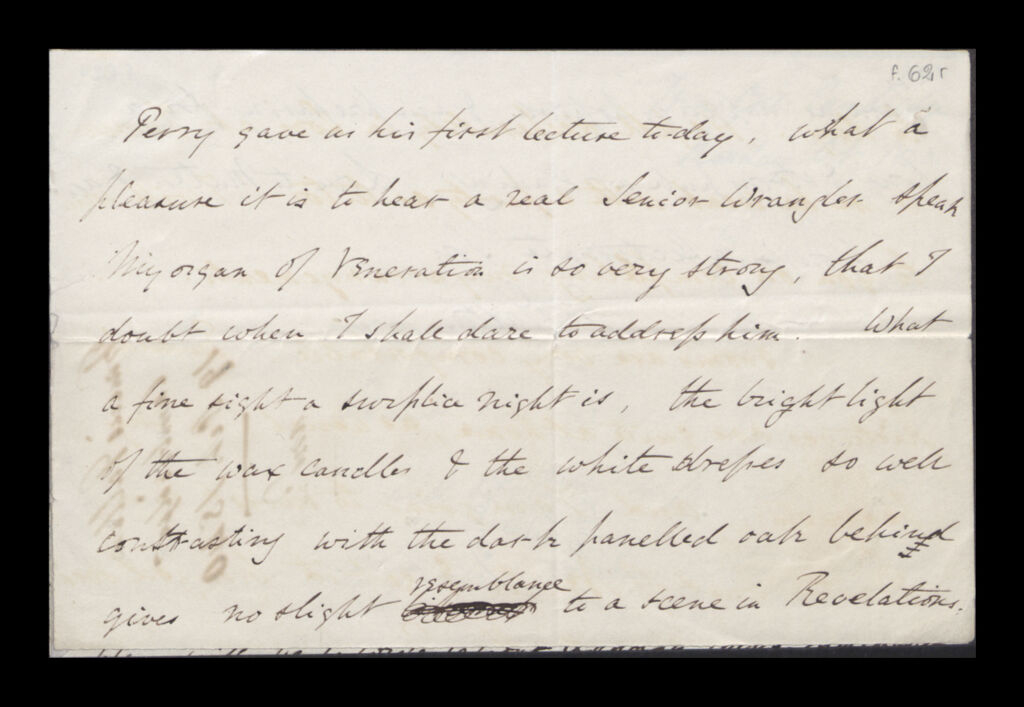 f. 62r
Perry gave us his first lecture to-day, what a
pleasure it is to hear a real Senior Wrangler speak
My organ of Veneration is so very strong, that I
doubt when I shall dare to address him. What
a fine sight a surplice night is, the bright light
of the wax candles & the white dresses so well
contrasting with the dark panelled oak behind
resemblance
gives no slight to a scene in Revelations.